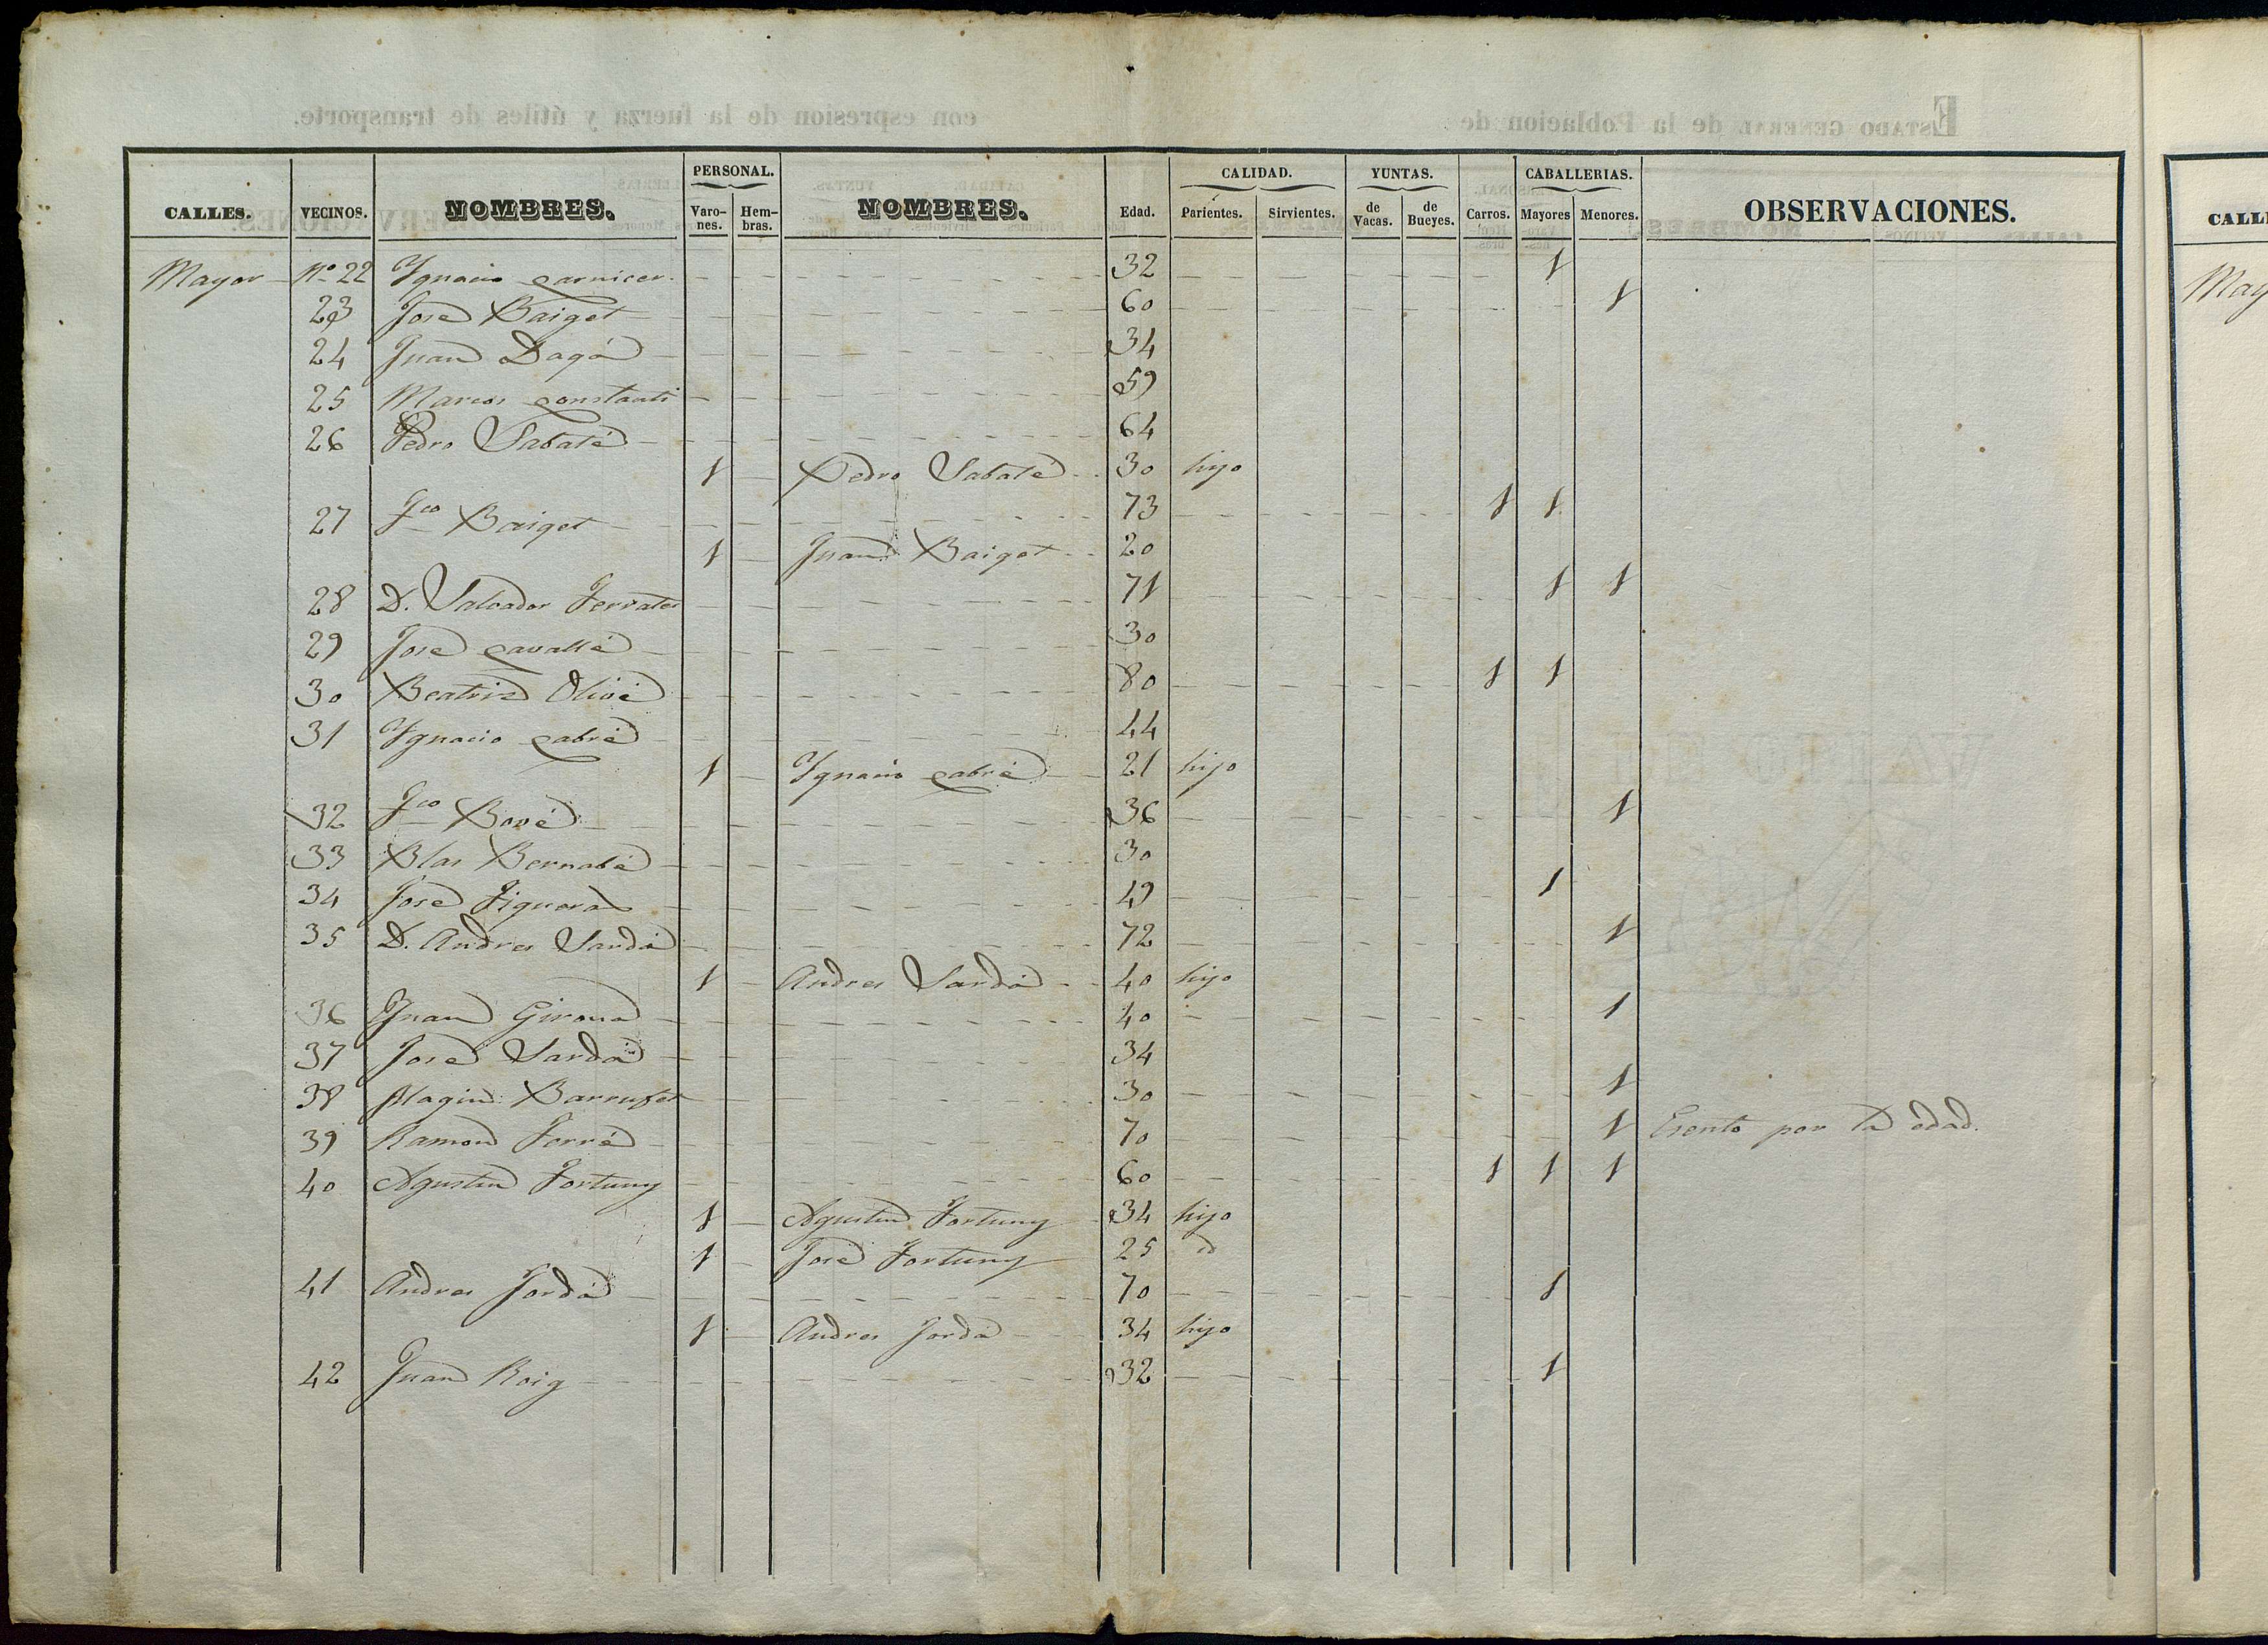 CALLES. VECINOS. NOMBRES. PERSONAL. Varones. Hembras. NOMBRES. Edad. CALIDAD. Parientes. Sirvientes. YUNTAS. de Vacas. de Bueyes. Carros. CABALLERIAS. Mayores Menores. OBSERVACIONES.
Mayor Nº 22 Ygnacio Carnicer 32 1
23 José Baiget 60 1
24 Juan Dagá 34
25 Marcos Constanti 59
26 Pedro Sabaté 64
1 Pedro Sabaté 30 hijo
27 Fco Baiget 73 1 1
1 Juan Baiget 20
28 D. Salvador Ferrater 71 1 1
29 José Cavallé 30
30 Beatriz Olivé 80 1 1
31 Ygnacio Cabré 44
1 Ygnacio Cabré 21 hijo
32 Fco Bové 36 1
33 Blas Bernabé 30
34 José Figueras 49 1
35 D. Andres Sardá 72 1
1 Andres Sardá 40 hijo
36 Juan Girona 40 1
37 José Sardá 34
38 Magin Barrufet 30 1
39 Ramon Ferré 70 1 Esento por la edad.
40 Agustin Fortuny 60 1 1 1
1 Agustin Fortuny 34 hijo
1 José Fortuny 25 id
41 Andres Jordá 70 1
1 Andres Jordá 34 hijo
42 Juan Roig 32 1
CALL
May